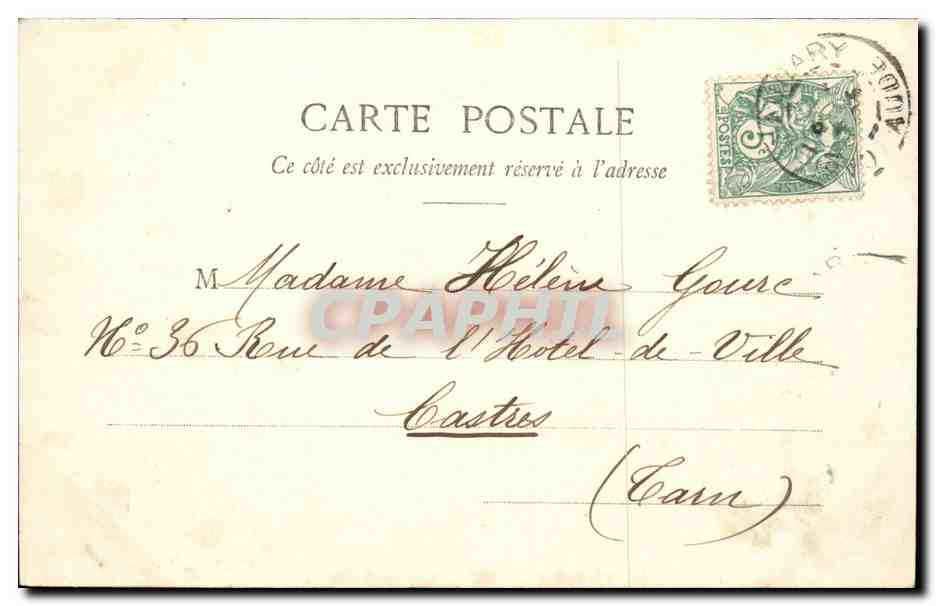 CARTE POSTALE
Ce côté est exclusivement réservé à l'adresse
5
POSTES
ARY
AUDE
M Madame Hélène Gourc
CPAPHIL
N° 36 Rue de l'Hotel-de-Ville
Castres
(Tarn)